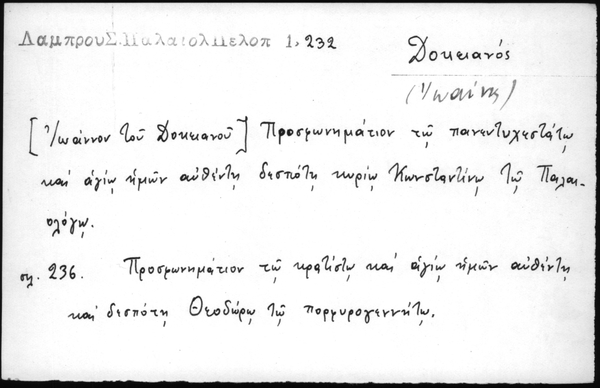 ΛαμπρουΣ.ΠαλαιολΠελοπ 1,232
Δοκειανός
(Ἰωάννης)
[Ἰωάννου τοῦ Δοκειανοῦ] Προσφωνημάτιον τῷ πανευτυχεστάτῳ
καὶ ἁγίῳ ἡμῶν αὐθέντῃ δεσπότῃ κυρίῳ Κωνσταντίνῳ τῷ Παλαι-
ολόγῳ.
σελ. 236. Προσφωνημάτιον τῷ κρατίστῳ καὶ ἁγίῳ ἡμῶν αὐθέντῃ
καὶ δεσπότῃ Θεοδώρῳ τῷ πορφυρογεννήτῳ.